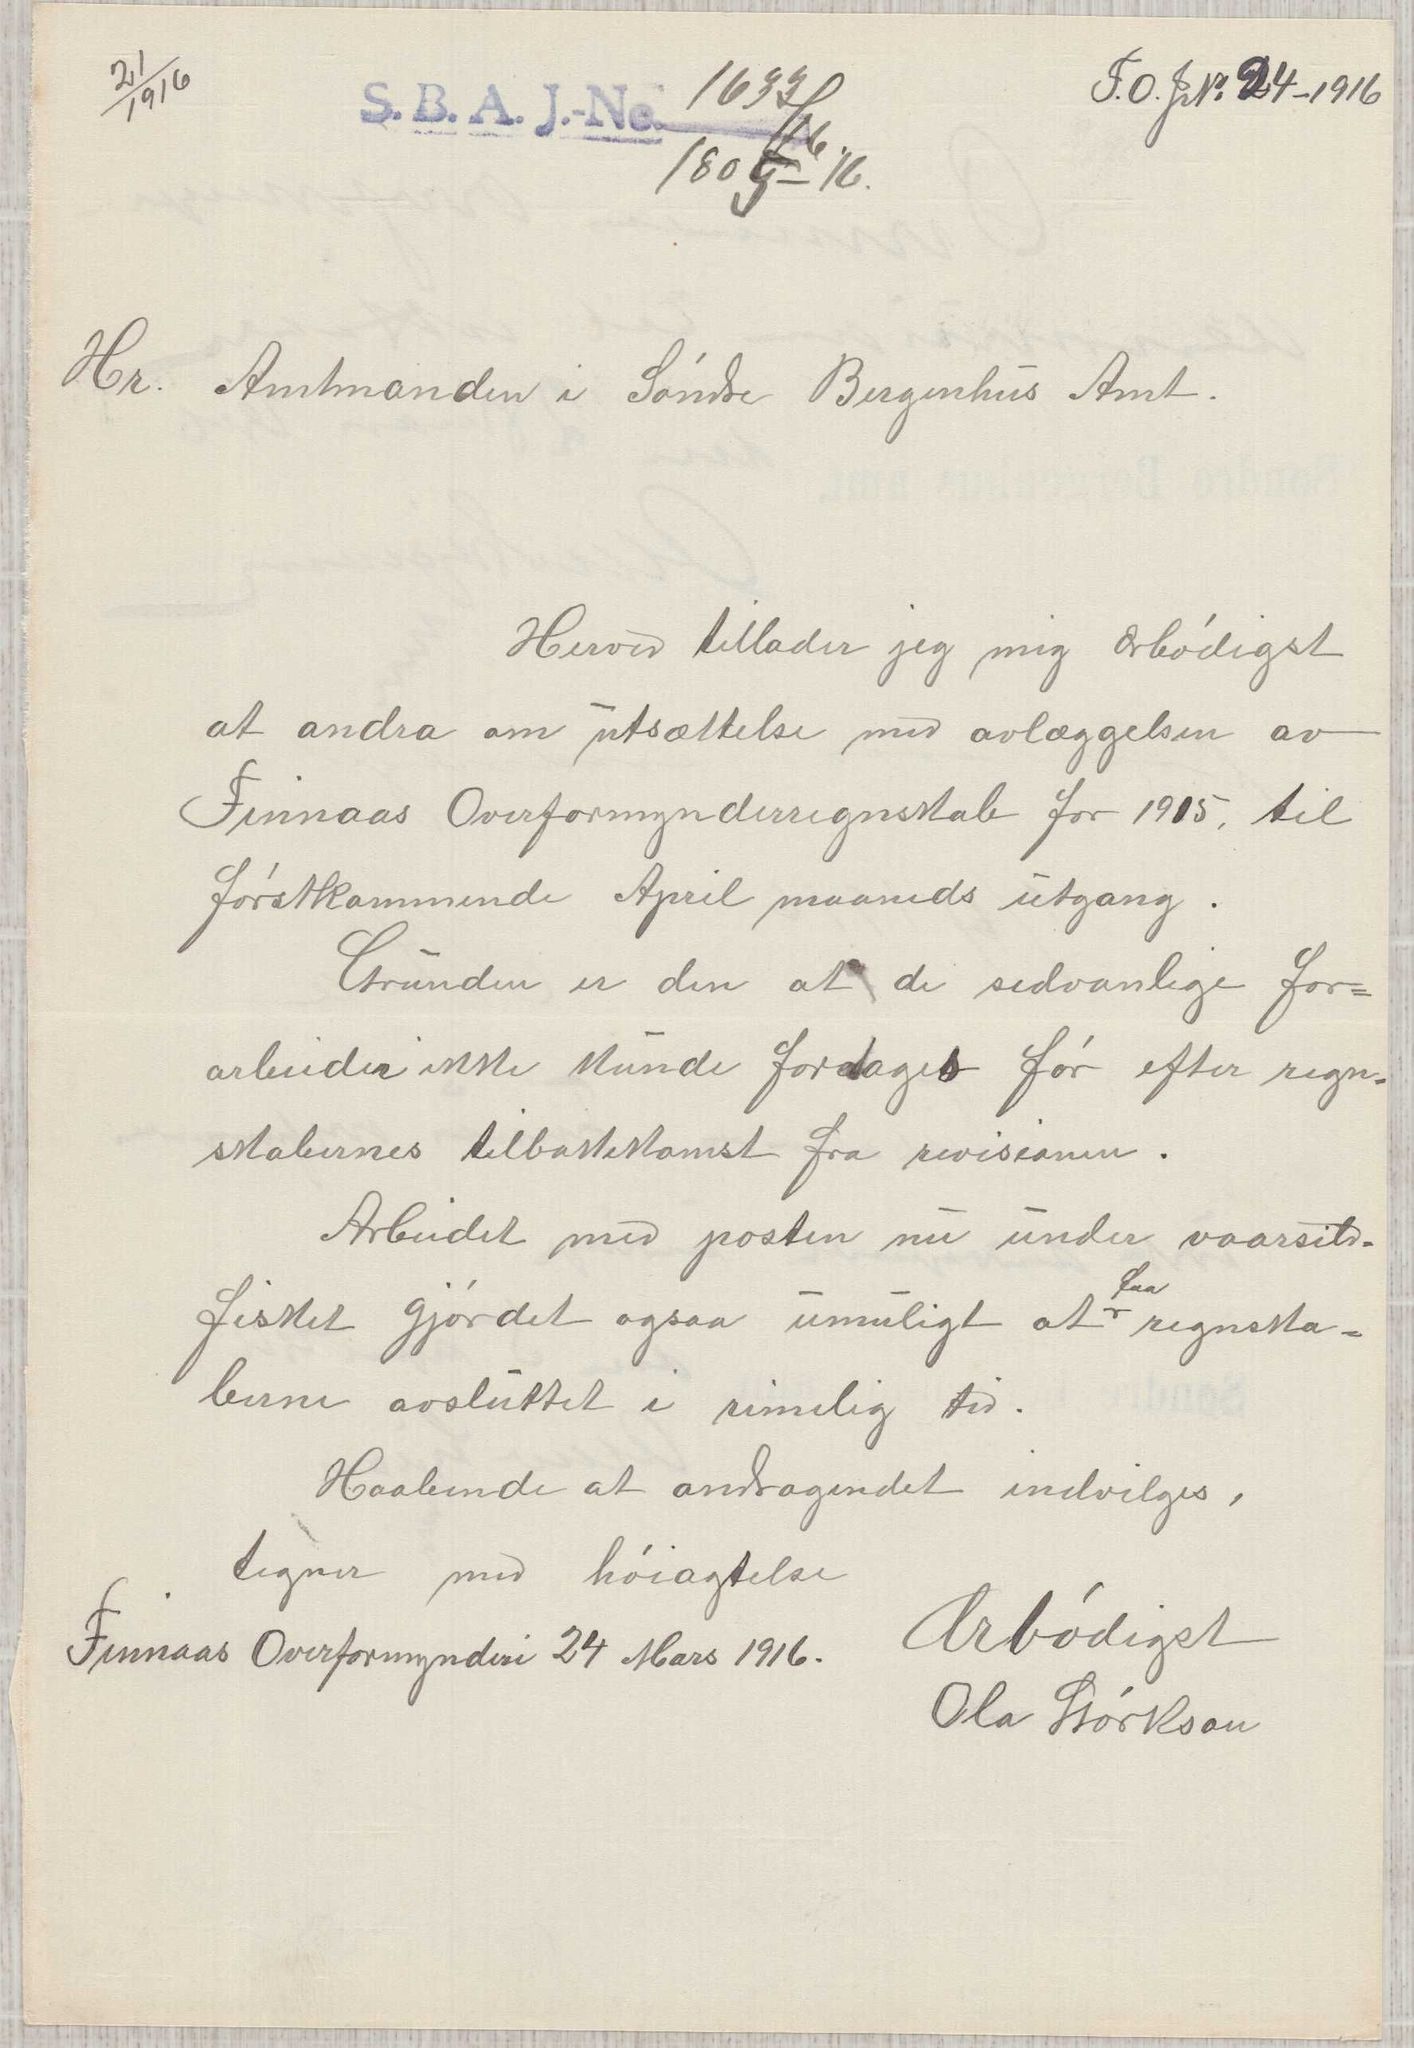 21/1916
S. B. A. J.-No. 1633/16.
180 – 16.
F.O. J.Nr. 24-1916
Hr. Amtmanden i Söndre Bergenhus Amt.
Herved tillader jeg mig ærbódigst
at andra om utsættelse med avlæggelsen av
Finnaas Overformynderregnskab for 1915, til
fórstkommende April maaneds utgang.
Grunden er den at de sedvanlige for=
arbeider ikke kunde fordages fór efter regn-
skabernes tilbakekomst fra revisionen.
Arbeidet med posten nu under vaarsild-
fisket gjórdet ogsaa umuligt at faa regnska-
berne avsluttet i rimelig tid.
Haabende at andragendet indvilges,
tegner med hóiagtelse
Finnaas Overformynderi 24 Mars 1916.
Ærbódigst
Ola Stórkson